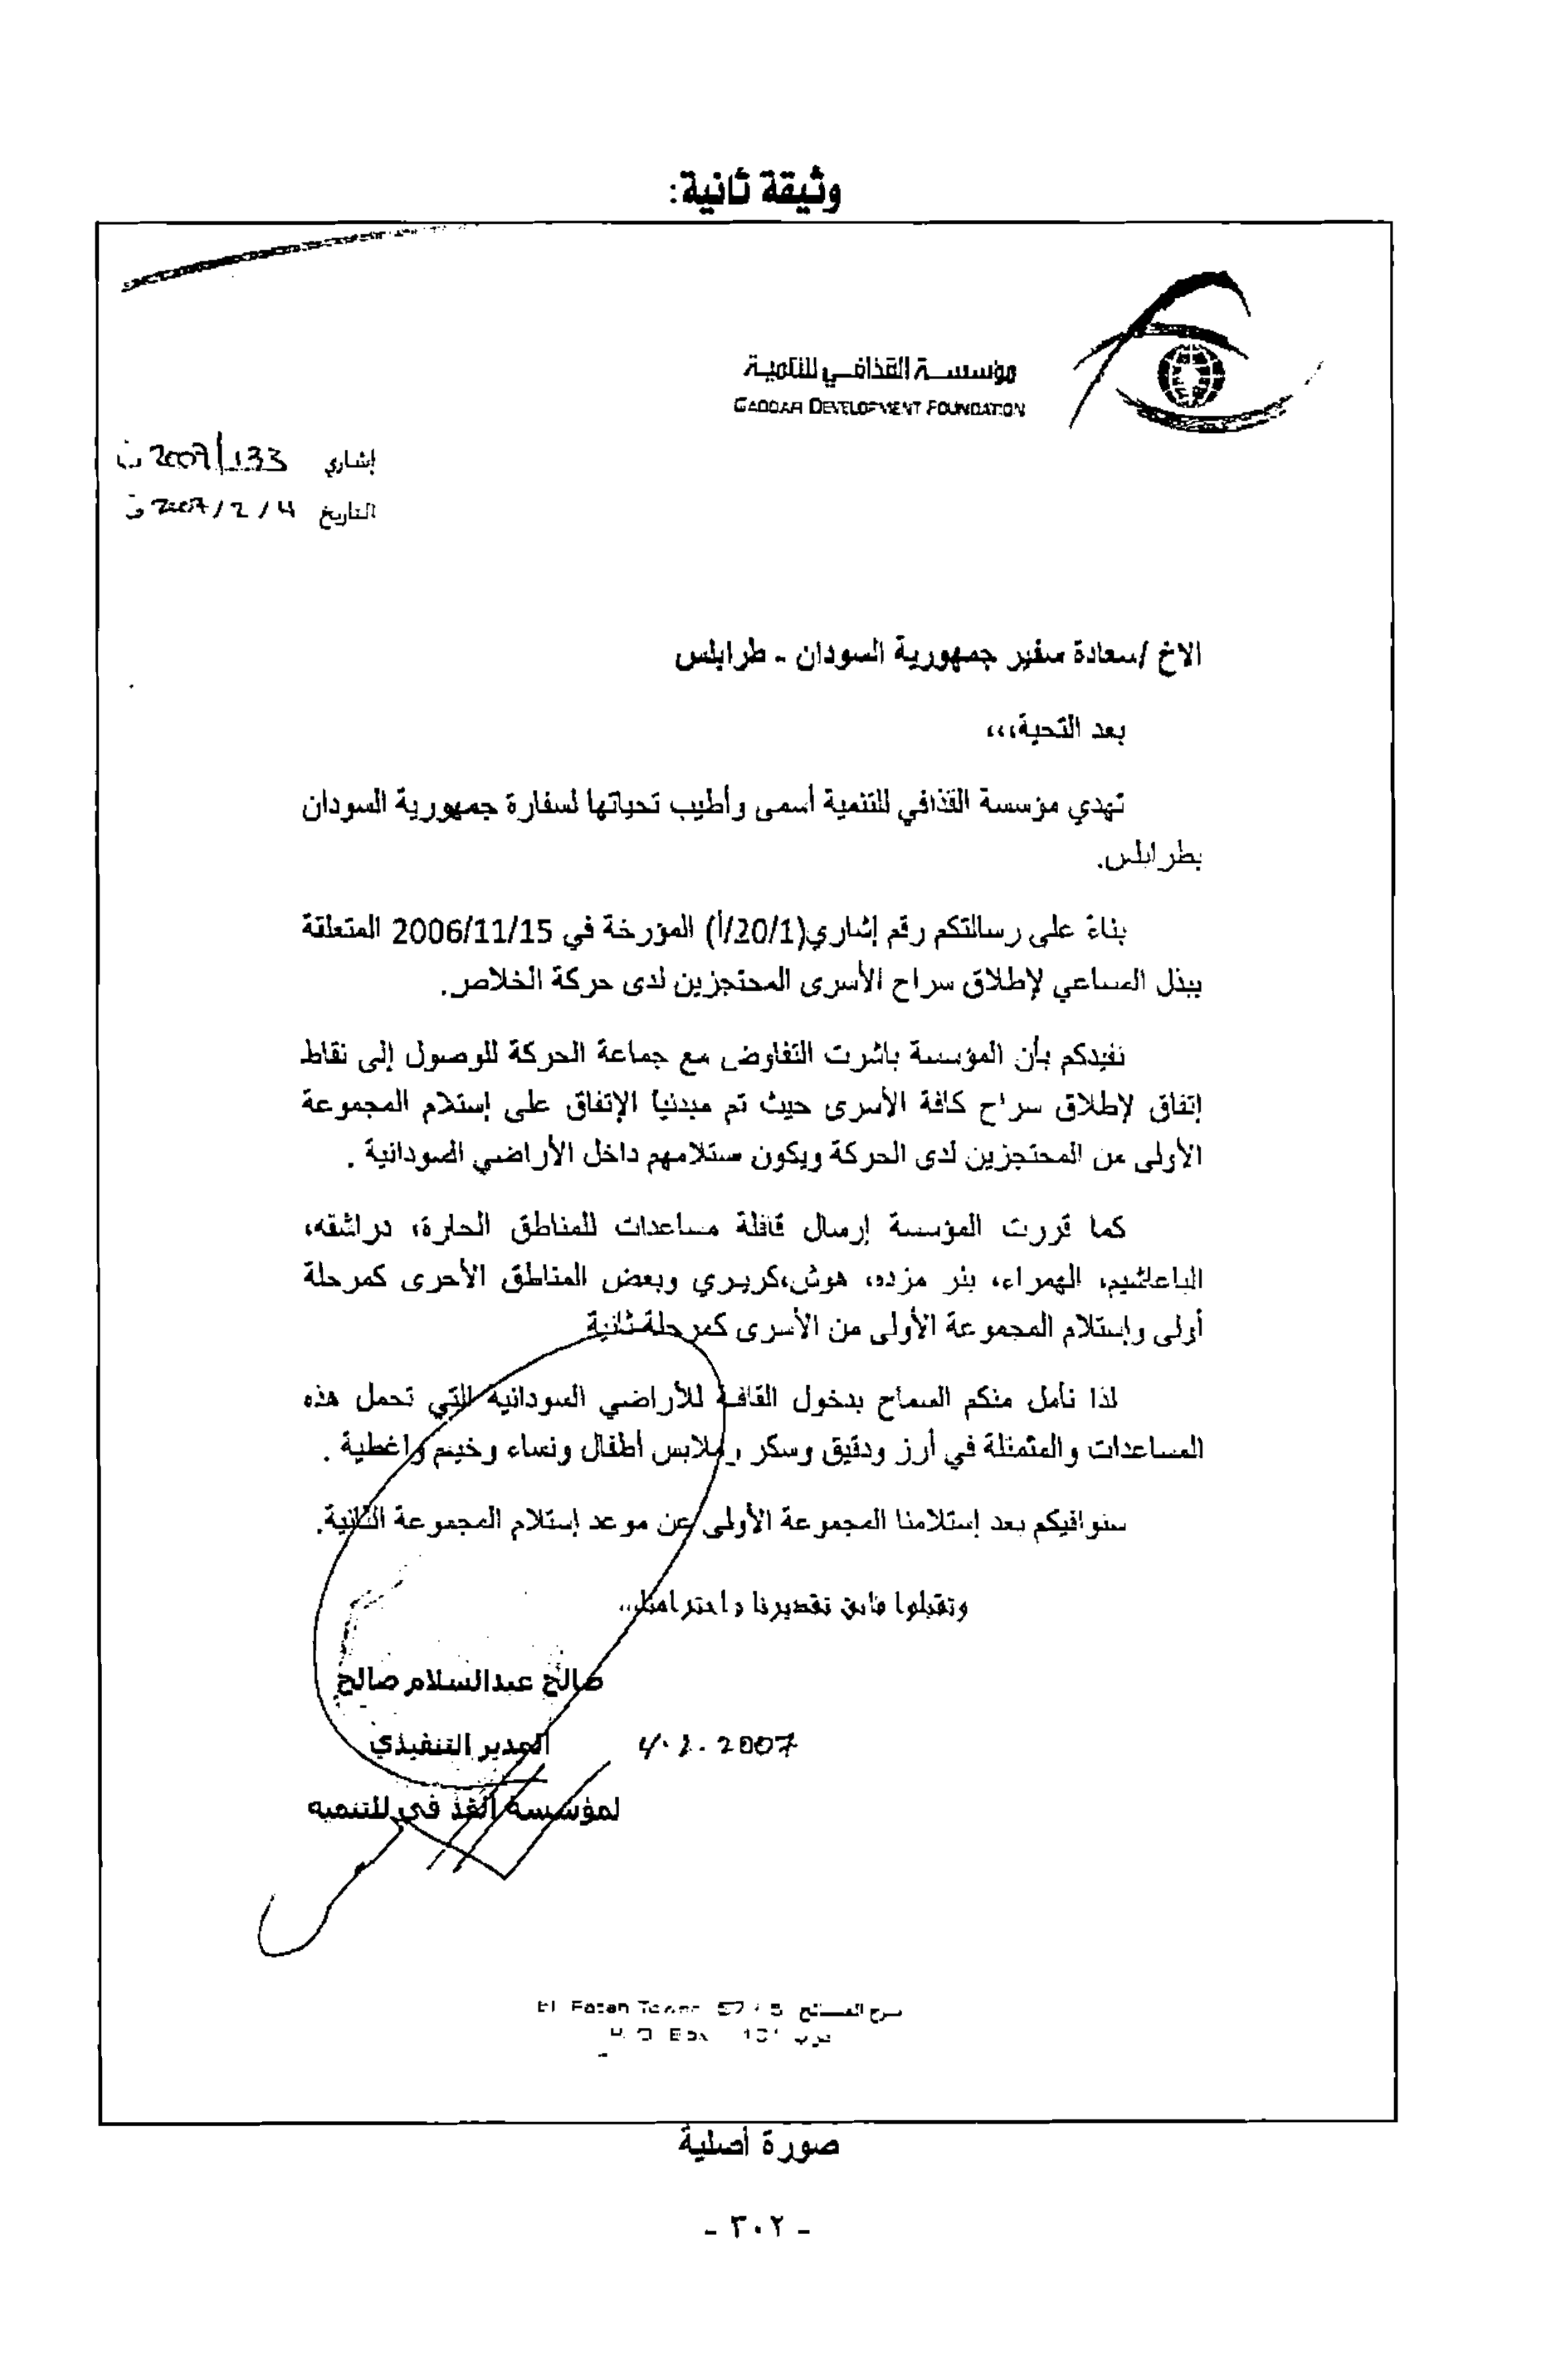 وثيقة ثانية:
مؤسسة القذافي للتنمية
GADDAFI DEVELOPMENT FOUNDATION
إشاري 2007/133
التاريخ 2007/2/4
الاخ /سعادة سفير جمهورية السودان - طرابلس
بعد التحية،،،
تهدي مؤسسة القذافي للتنمية أسمى وأطيب تحياتها لسفارة جمهورية السودان
بطرابلس.
بناءً على رسالتكم رقم إشاري(20/1/أ) المؤرخة في 2006/11/15 المتعلقة
ببذل المساعي لإطلاق سراح الأسرى المحتجزين لدى حركة الخلاص.
نفيدكم بأن المؤسسة باشرت التفاوض مع جماعة الحركة للوصول إلى نقاط
إتفاق لإطلاق سراح كافة الأسرى حيث تم مبدئيا الإتفاق على إستلام المجموعة
الأولى من المحتجزين لدى الحركة ويكون ستلامهم داخل الأراضي السودانية .
كما قررت المؤسسة إرسال قافلة مساعدات للمناطق الحارة، دراشقه،
الباعاشيم، الهمراء، بئر مزده، هوش،كريري وبعض المناطق الأخرى كمرحلة
أولى وإستلام المجموعة الأولى من الأسرى كمرحلة ثانية
لذا نأمل منكم السماح بدخول القافلة للأراضي السودانية التي تحمل هذه
المساعدات والمتمثلة في أرز ودقيق وسكر وملابس أطفال ونساء وخيم واغطية .
سنوافيكم بعد إستلامنا المجموعة الأولى عن موعد إستلام المجموعة الثانية.
وتقبلوا فائق تقديرنا واحترامنا..
صالح عبدالسلام صالح
المدير التنفيذي
4.2.2007
لمؤسسة القذافي للتنمية
El Fateh Tower برج الفاتح
P. O. Box ص.ب
صورة أصلية
- ٣٠٢ -